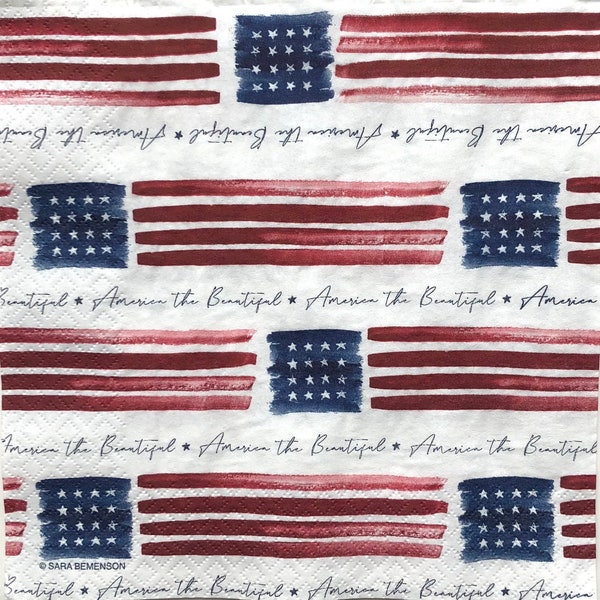 America the Beautiful ★ America the Beautiful ★ America the Beautiful
Beautiful ★ America the Beautiful ★ America the Beautiful ★ America
America the Beautiful ★ America the Beautiful ★ America the Beautiful
© SARA BEMENSON
Beautiful ★ America the Beautiful ★ America the Beautiful ★ America